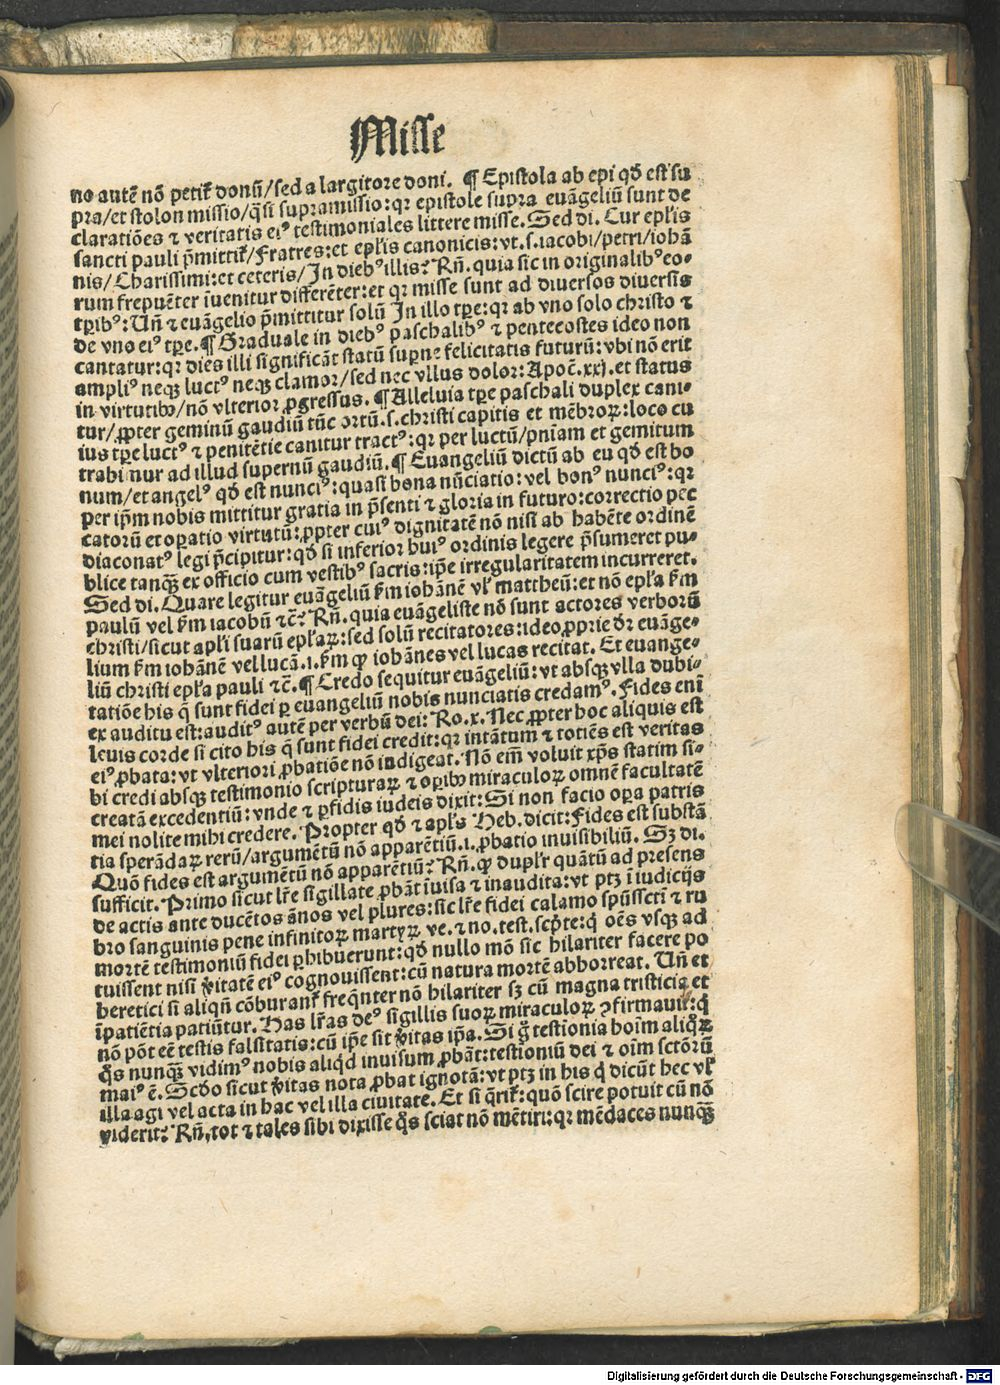 Misse
no autē nō petit᷑ donū/sed a largitore doni. ¶ Epistola ab epi qd̄ est su
pra/et stolon missio/q̄si supramissio:qr epistole supra euāgeliū sunt de
claratiōes ⁊ veritatis eiꝰ testimoniales littere misse. Sed di. Cur epl̄is
sancti pauli p̄mittit᷑/Fratres:et epl̄is canonicis:vt.s.iacobi/petri/iohā
nis/Charissimi:et ceteris/In diebꝰ illis? Rn̄. quia sic in originalibꝰ eo⸗
rum frequēter īuenitur differēter:et qr misse sunt ad diuersos diuersis
tp̄ibꝰ: Un̄ ⁊ euāgelio p̄mittitur solū In illo tp̄e:qr ab vno solo christo ⁊
de vno eiꝰ tp̄e. ¶ Graduale in diebꝰ paschalibꝰ ⁊ pentecostes ideo non
cantatur:qr dies illi significāt statū supne felicitatis futurū:vbi nō erit
ampliꝰ neqꝫ luctꝰ neqꝫ clamor/sed nec vllus dolor: Apoc̄.xxj. et status
in virtutibꝫ/nō vlterior ꝓgressus. ¶ Alleluia tp̄e paschali duplex cani⸗
tur/ꝓpter geminū gaudiū tūc ortū.s.christi capitis et mēbroꝝ:loco cu
ius tp̄e luctꝰ ⁊ penitētie canitur tractꝰ:qr per luctū/pn̄iam et gemitum
trahimur ad illud supernū gaudiū. ¶ Euangeliū dictū ab eu qd̄ est bo
num/et angelꝰ qd̄ est nunciꝰ:quasi bona nūciatio:vel bonꝰ nunciꝰ:qr
per ip̄m nobis mittitur gratia in p̄senti ⁊ gloria in futuro:correctio pec
catorū et oꝑatio virtutū:ꝓpter cuiꝰ dignitatē nō nisi ab habēte ordinē
diaconatꝰ legi p̄cipitur:qd̄ si inferior huiꝰ ordinis legere p̄sumeret pu⸗
blice tanqꝫ ex officio cum vestibꝰ sacris:ip̄e irregularitatem incurreret.
Sed di. Quare legitur euāgeliū km̄ iohānē vl̄ mattheū:et nō epl̄a km̄
paulū vel km̄ iacobū ⁊c̄? Rn̄. quia euāgeliste nō sunt actores verborū
christi/sicut apl̄i suarū epl̄aꝝ:sed solū recitatores:ideo ꝓprie dr̄ euāge⸗
lium km̄ iohānē vel lucā.i.km̄ ꝙ iohānes vel lucas recitat. Et euange⸗
liū christi epl̄a pauli ⁊c̄. ¶ Credo sequitur euāgeliū:vt absqꝫ vlla dubi⸗
tatiōe his q̄ sunt fidei ꝑ euangeliū nobis nunciatis credamꝰ. Fides enī
ex auditu est:auditꝰ autē per verbū dei: Ro.x. Nec ꝓpter hoc aliquis est
leuis corde si cito his q̄ sunt fidei credit:qr intātum ⁊ totiēs est veritas
eiꝰ ꝓbata:vt vlteriori ꝓbatiōe nō indigeat. Nō em̄ voluit xp̄s statim si⸗
bi credi absqꝫ testimonio scripturaꝝ ⁊ oꝑibꝫ miraculoꝝ omnē facultatē
creatā excedentiū:vnde ⁊ ꝑfidis iudeis dixit: Si non facio oꝑa patris
mei nolite mihi credere. Propter qd̄ ⁊ apl̄s Heb. dicit: Fides est substā
tia sperādaꝝ rerū/argumētū nō apparētiū.i.ꝓbatio inuisibiliū. Sꝫ di.
Quō fides est argumētū nō apparētiū? Rn̄. ꝙ dupl̄r quātū ad presens
sufficit. Primo sicut lr̄e sigillate ꝓbāt īuisa ⁊ inaudita:vt ptꝫ ī iudicijs
de actis ante ducētos ānos vel plures:sic lr̄e fidei calamo sp̄ūssctī ⁊ ru
bro sanguinis pene infinitoꝝ martyꝝ ve.⁊ no.test.scp̄te:q̇ oēs vsqꝫ ad
mortē testimoniū fidei ꝑhibuerunt:qd̄ nullo mō sic hilariter facere po
tuissent nisi v̄itatē eiꝰ cognouissent:cū natura mortē abhorreat. Un̄ et
heretici si aliqn̄ cōburant᷑ freqn̄ter nō hilariter sꝫ cū magna tristicia et
īpatiētia patiūtur. Has lr̄as deꝰ sigillis suoꝝ miraculoꝝ ꝯfirmauit:q̇
nō pōt eē testis falsitatis:cū ip̄e sit v̄itas ip̄a. Si g̊ testionia hoīm aliqꝝ
q̊s nunqꝫ vidimꝰ nobis aliqd̄ inuisum ꝓbāt:testioniū dei ⁊ oīm sctōrū
maiꝰ ē. Scd̄o sicut v̄itas nota ꝓbat ignotā:vt ptꝫ in his q̇ dicūt hec vl̄
illa agi vel acta in hac vel illa ciuitate. Et si q̄rit᷑:quō scire potuit cū nō
viderit? Rn̄, tot ⁊ tales sibi dixisse q̊s sciat nō mētiri:qr mēdaces nunqꝫ
Digitalisierung gefördert durch die Deutsche Forschungsgemeinschaft - DFG